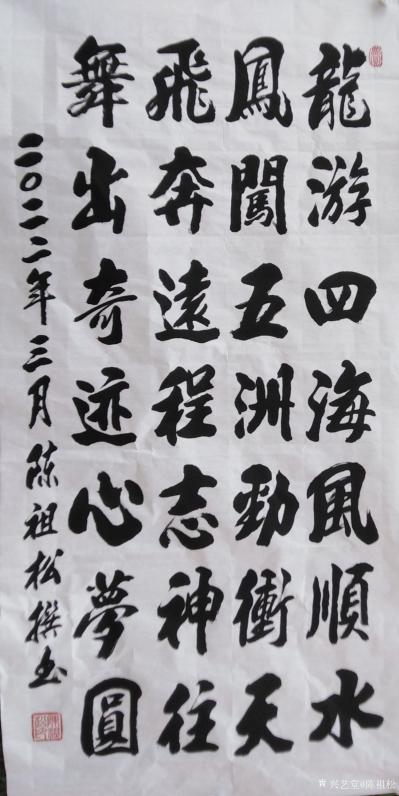 龍游四海風順水
鳳闖五洲勁衝天
飛奔遠程志神往
舞出奇迹心夢圓
二〇二二年三月陈祖松撰书
兴艺堂@陈祖松